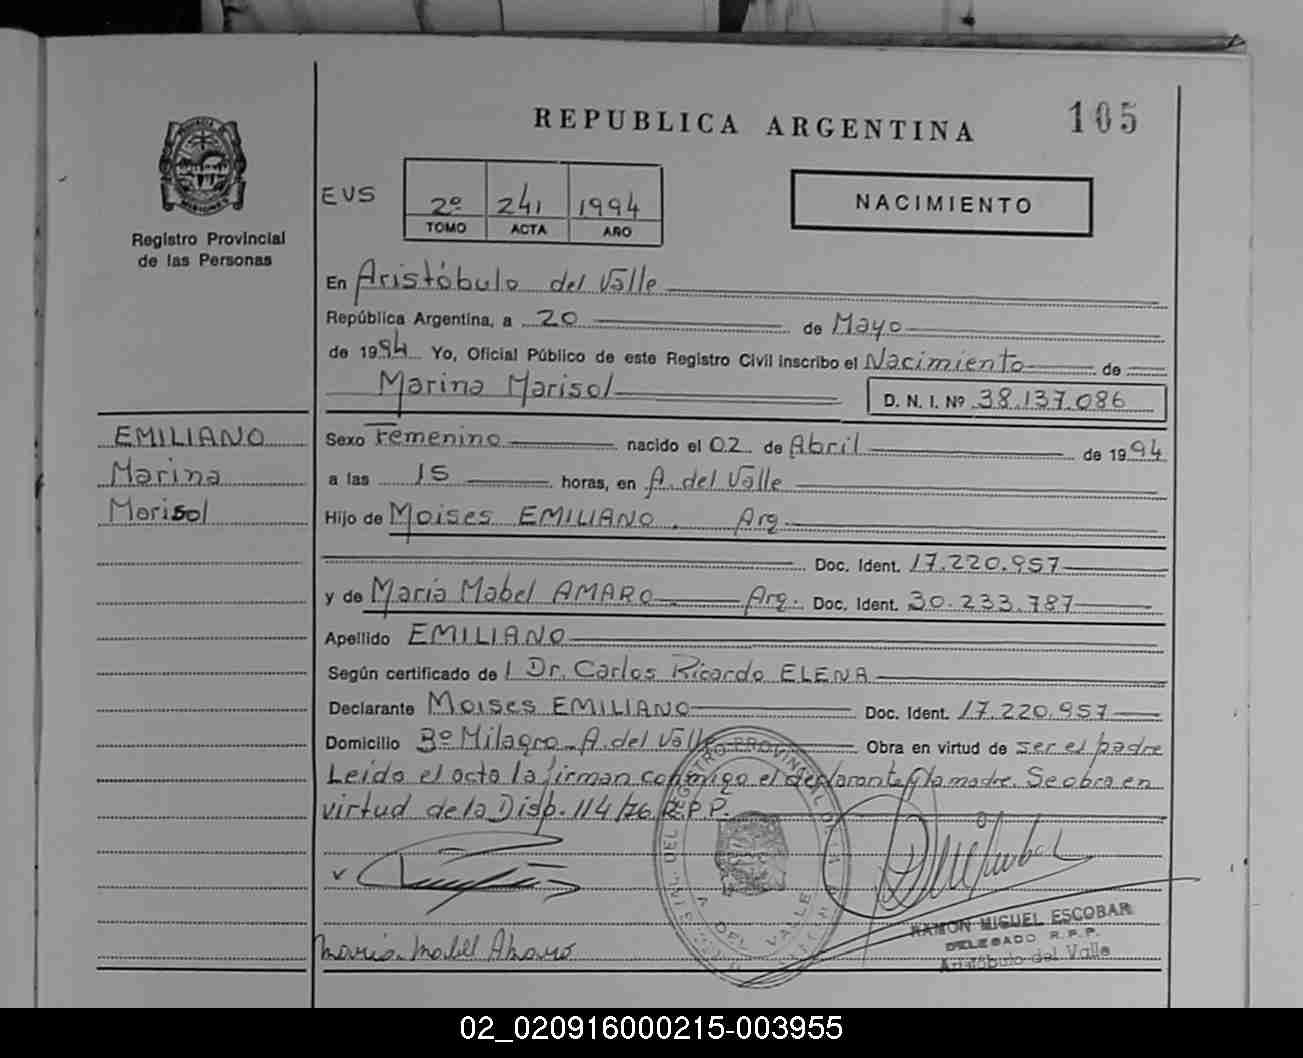 REPUBLICA ARGENTINA
105
Registro Provincial
de las Personas
EVS
2º 241 1994
TOMO ACTA AÑO
NACIMIENTO
En Aristóbulo del Valle
República Argentina, a 20 de Mayo
de 1994 Yo, Oficial Público de este Registro Civil inscribo el Nacimiento de
Marina Marisol D. N. I. Nº 38.137.086
EMILIANO
Marina
Marisol
Sexo Femenino nacido el 02 de Abril de 1994
a las 15 horas, en A. del Valle
Hijo de Moises EMILIANO. Arg.
Doc. Ident. 17.220.957
y de Maria Mabel AMARO. Arg. Doc. Ident. 30.233.787
Apellido EMILIANO
Según certificado de Dr. Carlos Ricardo ELENA
Declarante Moises EMILIANO Doc. Ident. 17.220.957
Domicilio 3º Milagro - A. del Valle Obra en virtud de ser el padre
Leída el acta la firman conmigo el declarante y la madre. Se obra en
virtud de la Disp. 114/76 R.P.P.
Maria Mabel Amaro
RAMON MIGUEL ESCOBAR
DELEGADO R.P.P.
Aristóbulo del Valle
02_020916000215-003955